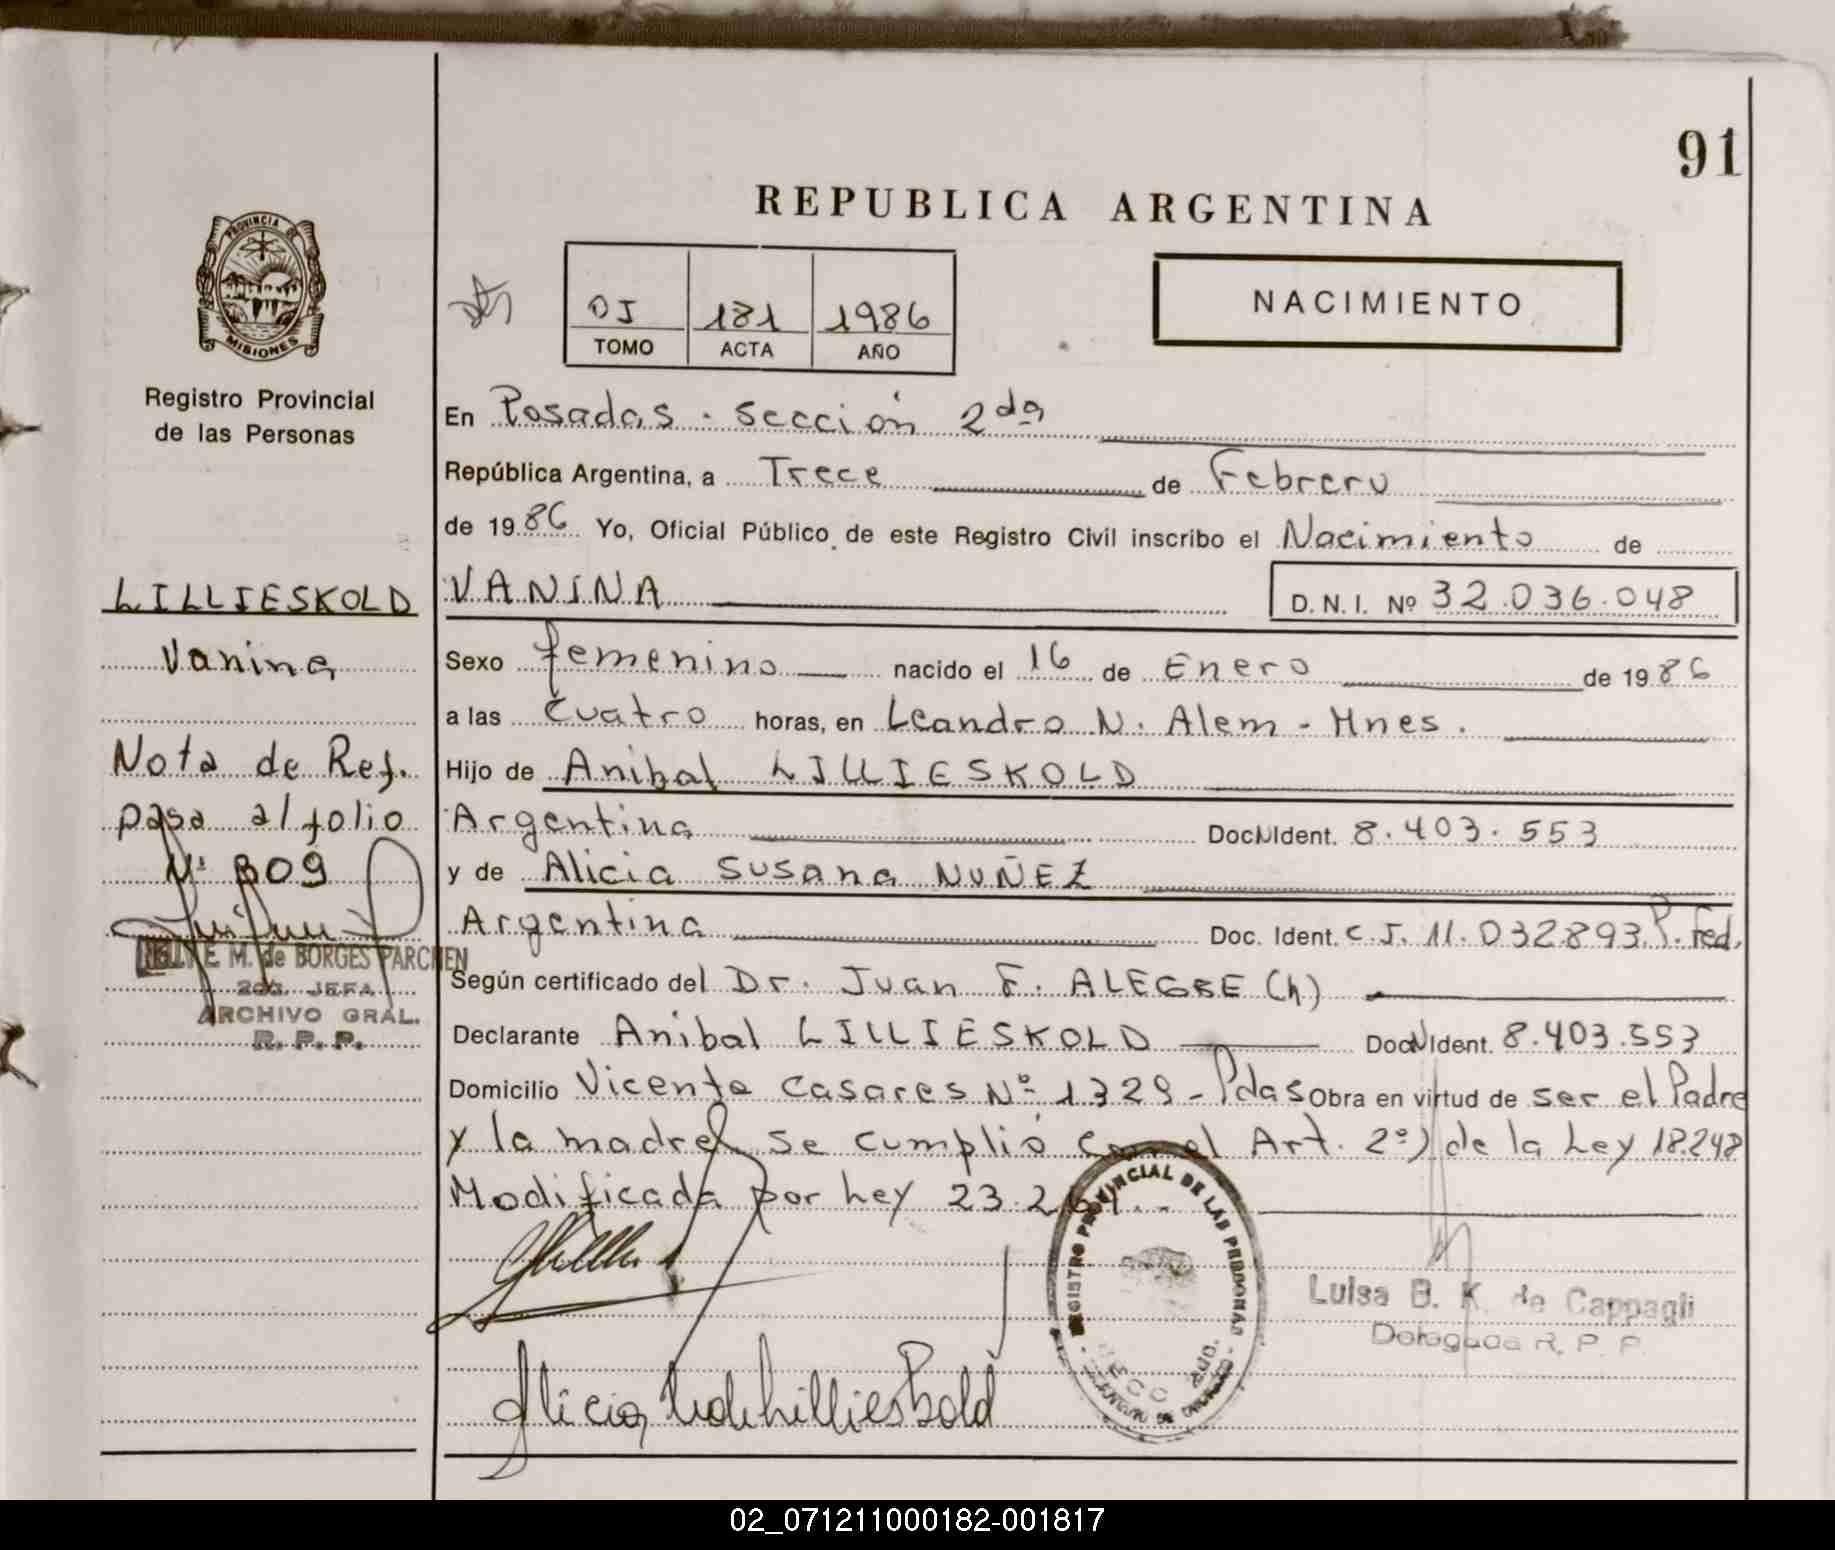 91
REPUBLICA ARGENTINA
PROVINCIA DE
MISIONES
Registro Provincial
de las Personas
NACIMIENTO
181 1986
TOMO ACTA AÑO
En Posadas - Sección 2da
República Argentina, a Trece de Febrero
de 1986 Yo, Oficial Público de este Registro Civil inscribo el Nacimiento de
VANINA D. N. I. Nº 32.036.048
Sexo femenino nacido el 16 de Enero de 1986
a las Cuatro horas, en Leandro N. Alem - Mnes.
Hijo de Anibal LILLIESKOLD
Argentina Doc.NIdent. 8.403.553
y de Alicia Susana NUÑEZ
Argentina Doc. Ident. C.I. 11.032893 P. Fed.
Según certificado del Dr. Juan F. ALEGRE (h)
Declarante Anibal LILLIESKOLD DocNIdent. 8.403.553
Domicilio Vicente Casares Nº 1329 - Pdas Obra en virtud de ser el Padre
y la madre se cumplió con el Art. 2º) de la Ley 18.248
Modificada por Ley 23.264.-
LILLIESKOLD
Vanina
Nota de Ref.
pasa al folio
Nº 309
M. de BORGES PARCHEN
JEFA
ARCHIVO GRAL.
R. P. P.
REGISTRO PROVINCIAL DE LAS PERSONAS
Luisa B. K. de Cappagli
Delegada R. P. P.
Alicia de Lillieskold
02_071211000182-001817